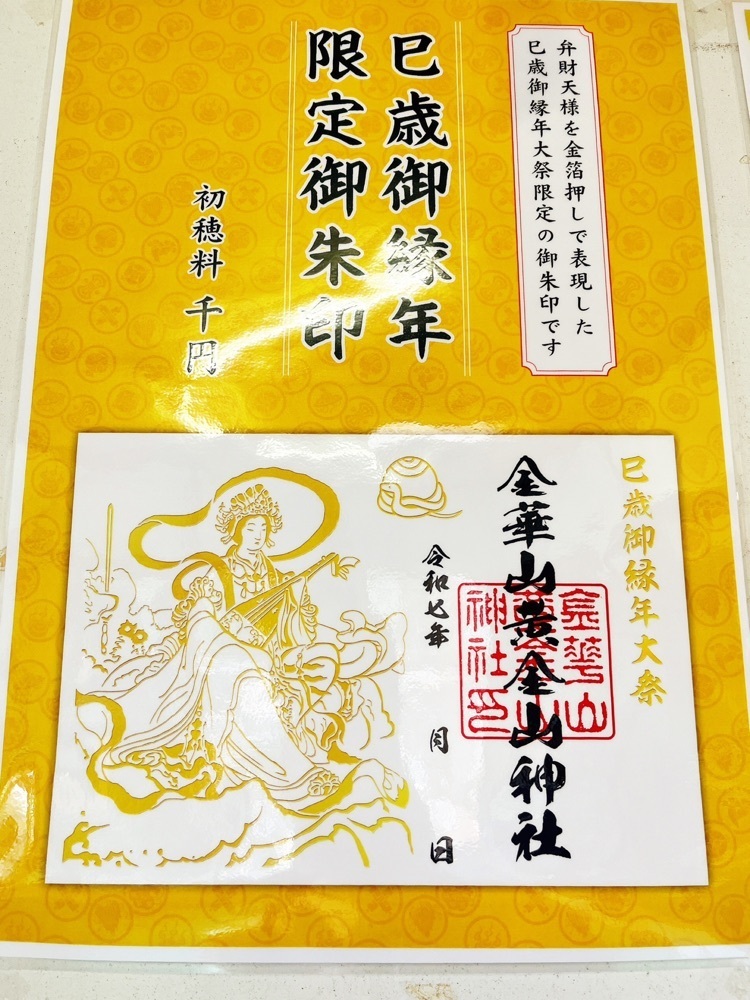 弁財天様を金箔押しで表現した
巳歳御縁年大祭限定の御朱印です
巳歳御縁年
限定御朱印
初穂料 千円
巳歳御縁年大祭
金華山黄金山神社
令和七年 月 日